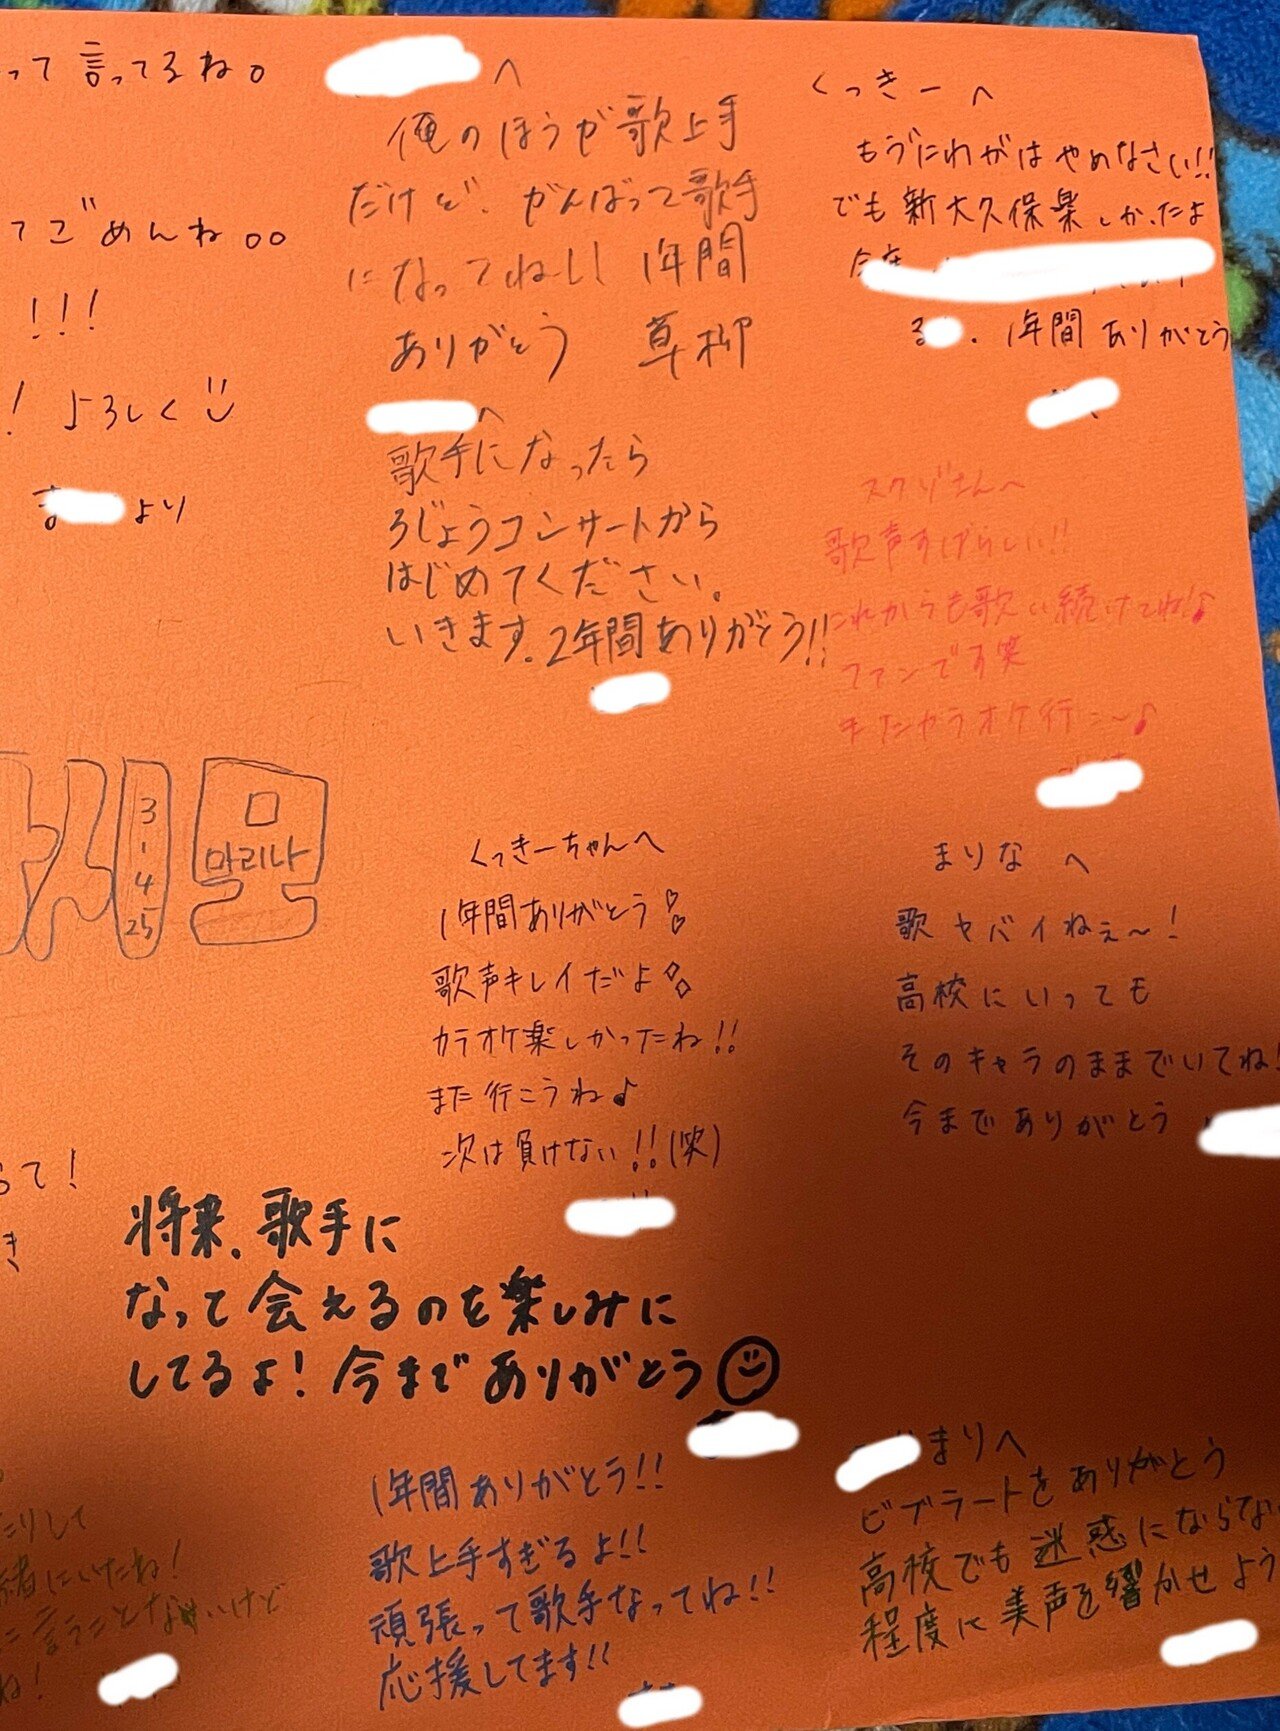 って言ってるね。
てごめんね。。
!!!
! よろしく
より
へ
俺のほうが歌上手
だけど、がんばって歌手
になってねし! 1年間
ありがとう 草柳
へ
歌手になったら
ろじょうコンサートから
はじめてください。
いきます。2年間ありがとう!!
くっきーへ
もうにわがはやめなさい!!
でも新大久保楽しかったよ
る . 1年間ありがとう
さんへ
歌声すばらしい!!
これからも歌い続けてね♪
ファンです笑
またカラオケ行こ〜♪
3-4 25
마리나
くっきーちゃんへ
1年間ありがとう♡♡
歌声キレイだよ◇◇
カラオケ楽しかったね!!
また行こうね♪
次は負けない!!(笑)
まりなへ
歌ヤバイねぇ〜!
高校にいっても
そのキャラのままでいてね!
今までありがとう
って!
き
将来、歌手に
なって会えるのを楽しみに
してるよ! 今までありがとう
たりして
緒にいたね!
に言うことないけど
ね!
1年間ありがとう!!
歌上手すぎるよ!!
頑張って歌手なってね!!
応援してます!!
まりへ
ビブラートをありがとう
高校でも迷惑にならない
程度に美声を響かせよう